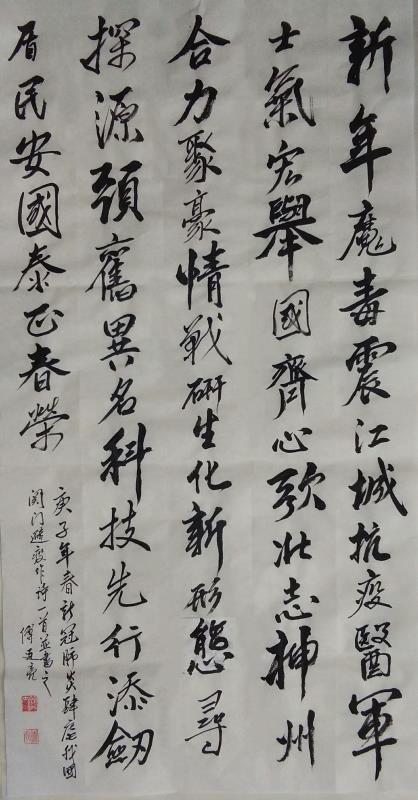 新年魔毒震江城抗疫醫軍
士氣宏舉國齊心歌壯志神州
合力聚豪情戰研生化新形態尋
探源頭舊異名科技先行添劒
盾民安國泰正春榮
庚子年春新冠肺炎肆虐我國
閉门避疫作诗一首並書之